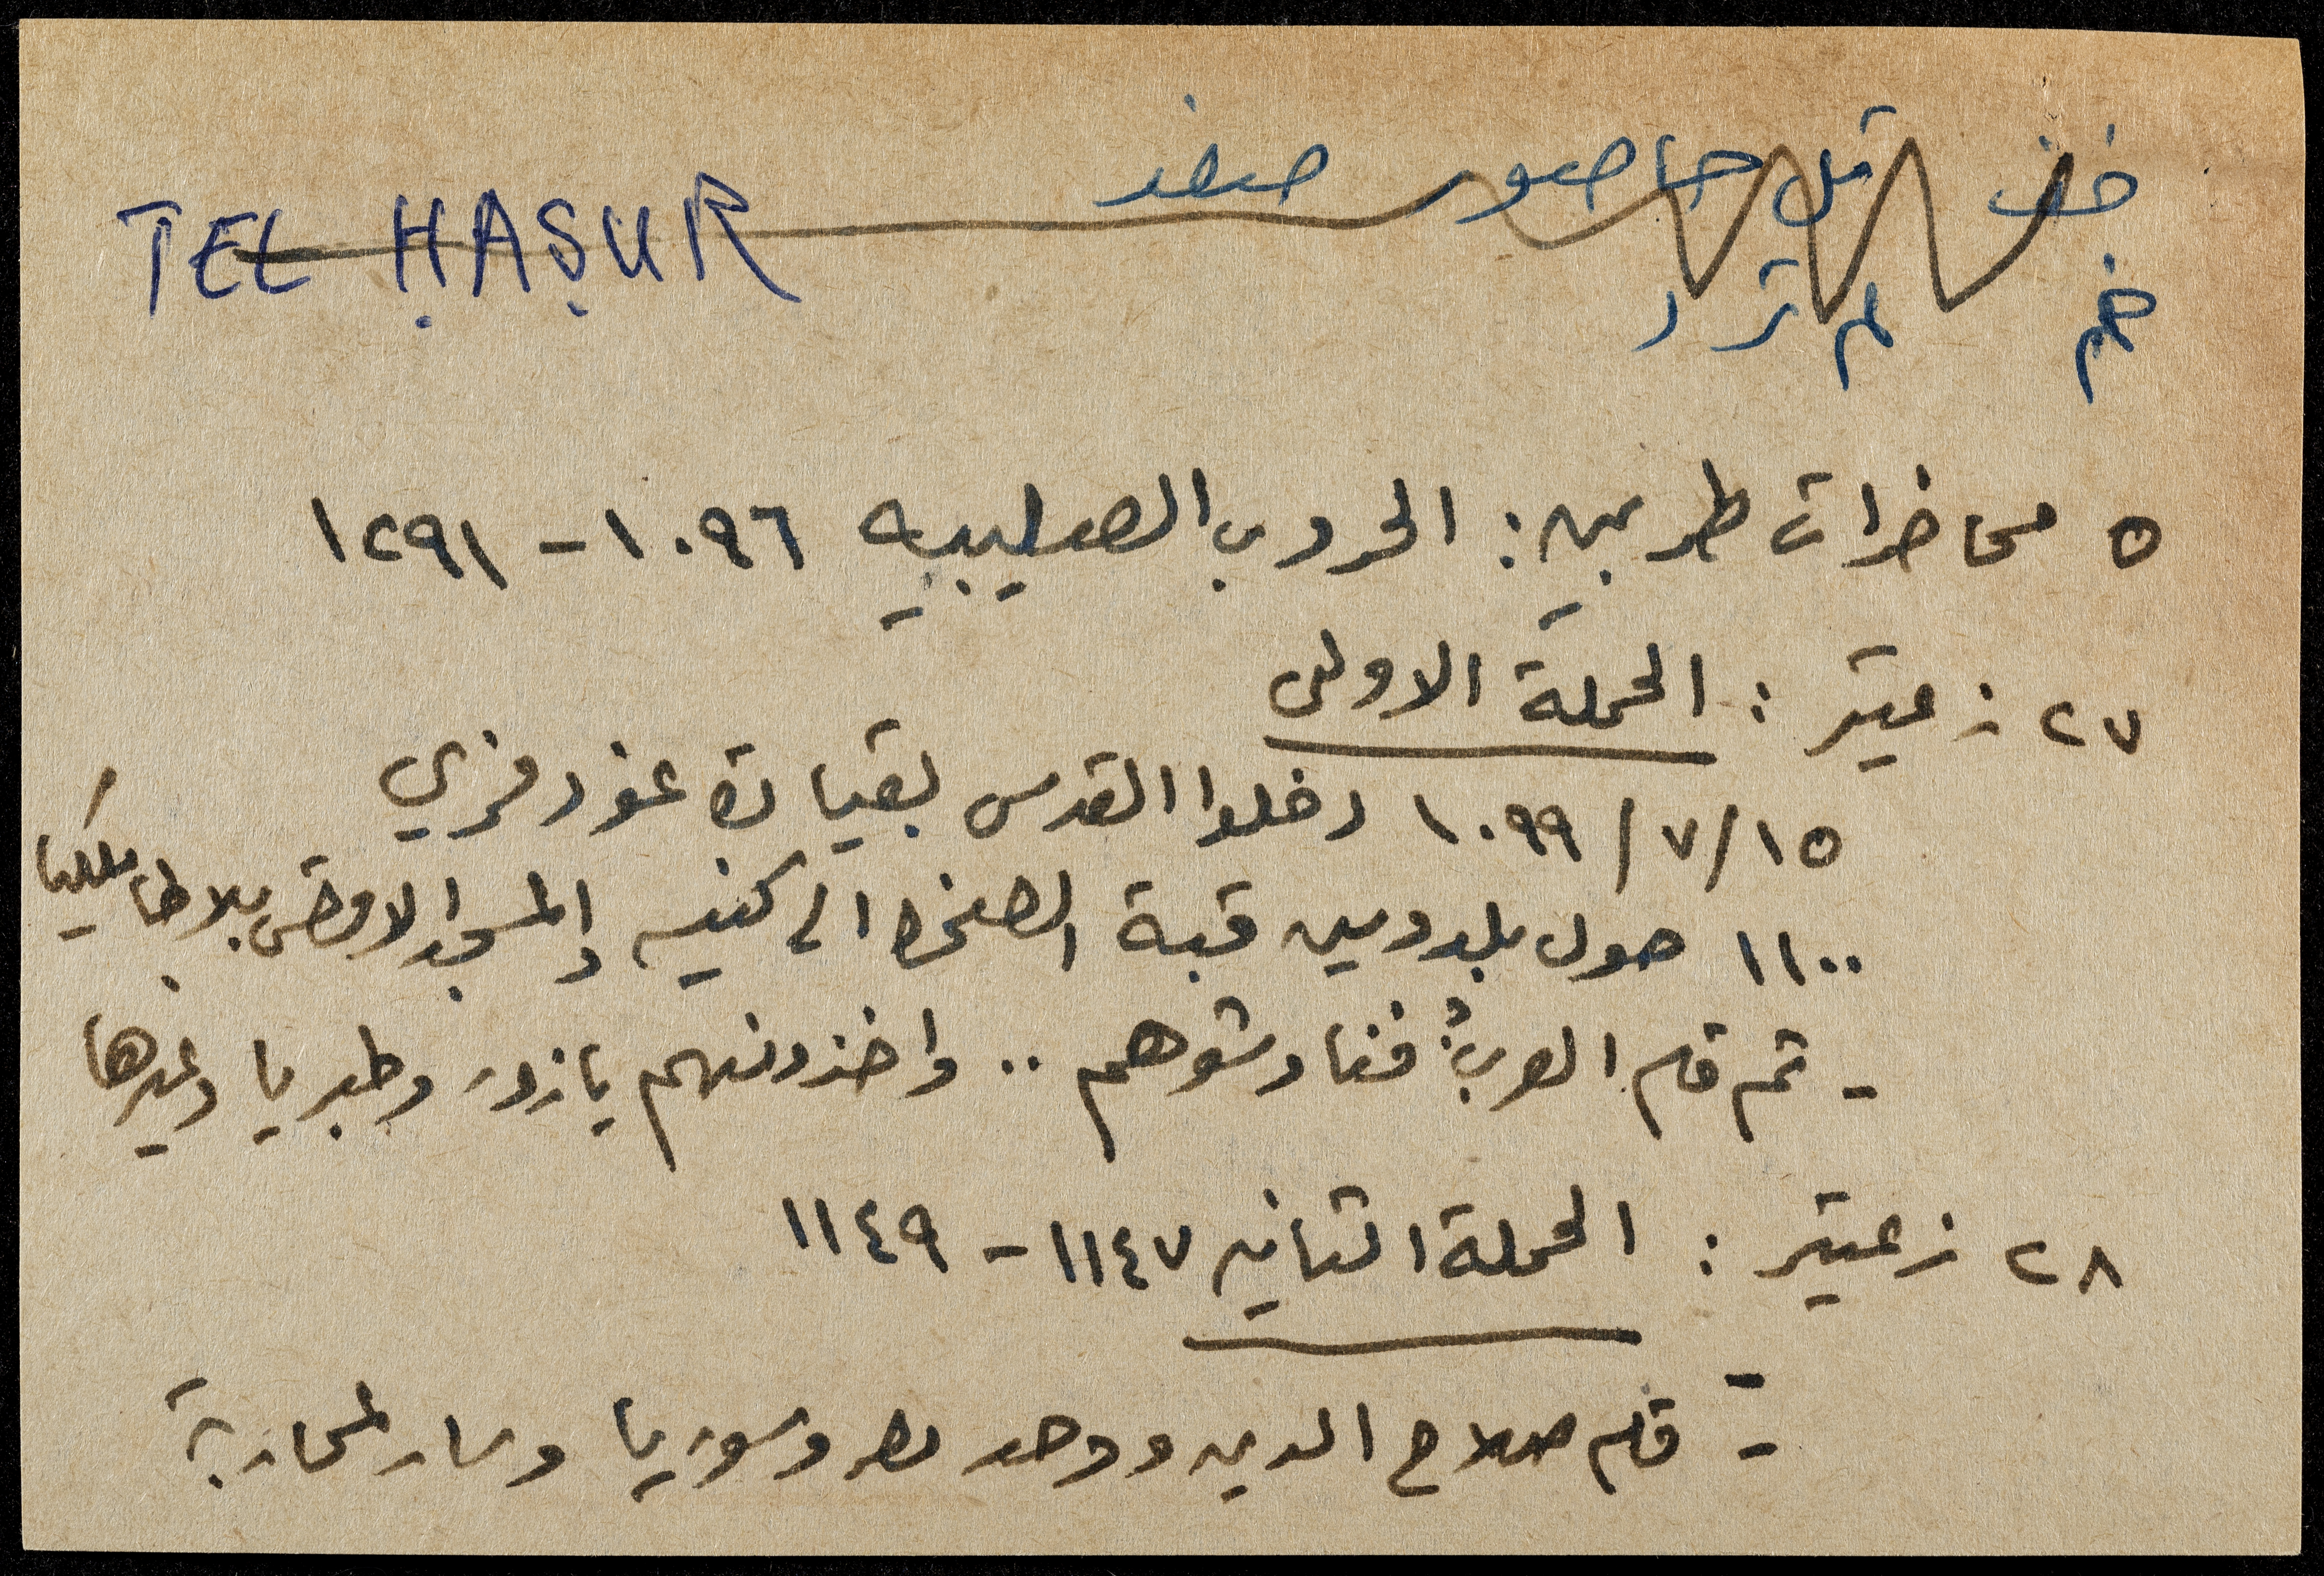 خف تل حاصور صفد
TEL ḤAṢUR
خم لم ترد
٥ محاضرات طربين: الحروب الصليبيه ١٠٩٦ - ١٢٩١
٢٧ زعيتر : الحملة الاولى
١٥/٧/١٠٩٩ دخلوا القدس بقيادة غودفري
١١٠٠ حول بلدوين قبة الصخرة الى كنيسه والمسجد الاقصى بلاطا ملكيا
- ثم قام العرب فناوشوهم .. واخذوا منهم يازور وطبريا وغيرها
٢٨ زعيتر : الحملة الثانيه ١١٤٧ - ١١٤٩
- قام صلاح الدين ووحد مصر وسوريا وسار لمحاربة